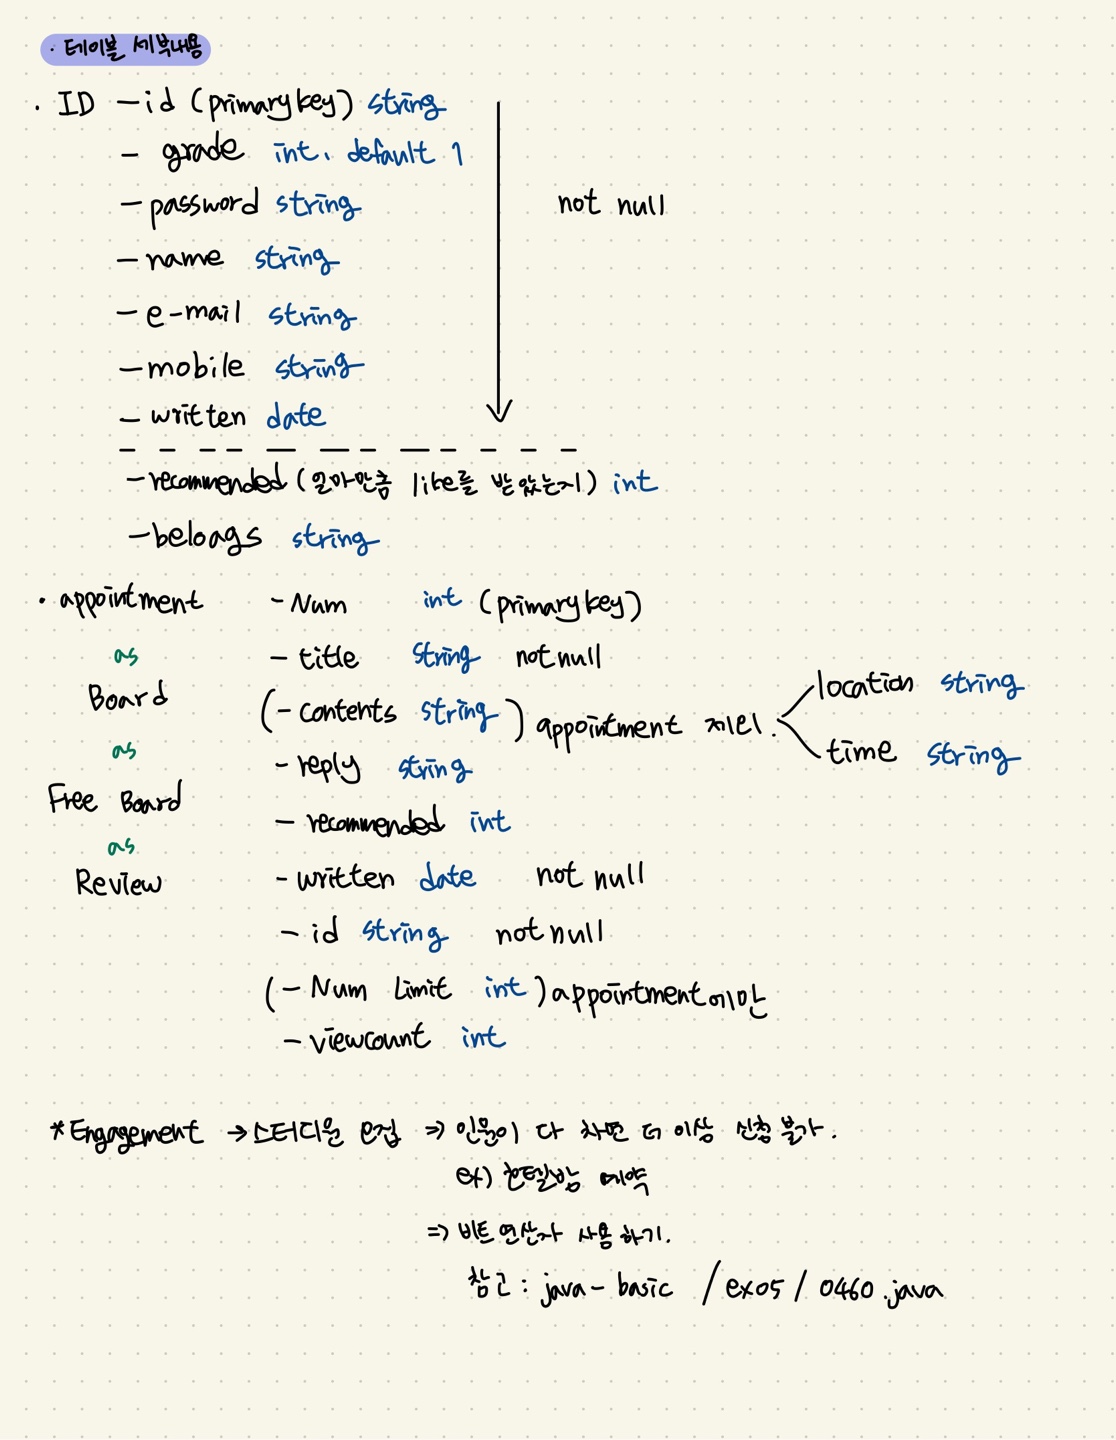 · 테이블 세부내용
· ID - id (primary key) string
- grade int, default 1
- password string
not null
- name string
- e-mail string
- mobile string
- written date
- recommended (얼마만큼 like를 받았는지) int
- beloags string
· appointment
as
Board
as
Free Board
as
Review
- Num int (primary key)
- title string not null
(- contents string) appointment 제외.
location string
time string
- reply string
- recommended int
- written date not null
- id string not null
(- Num Limit int) appointment에만
- viewcount int
* Engagement → 스터디운 모집 ⇒ 인원이 다 차면 더 이상 신청 불가.
ex) 호텔방 예약
⇒ 비트 연산자 사용하기.
참고 : java - basic / ex05 / 0460.java